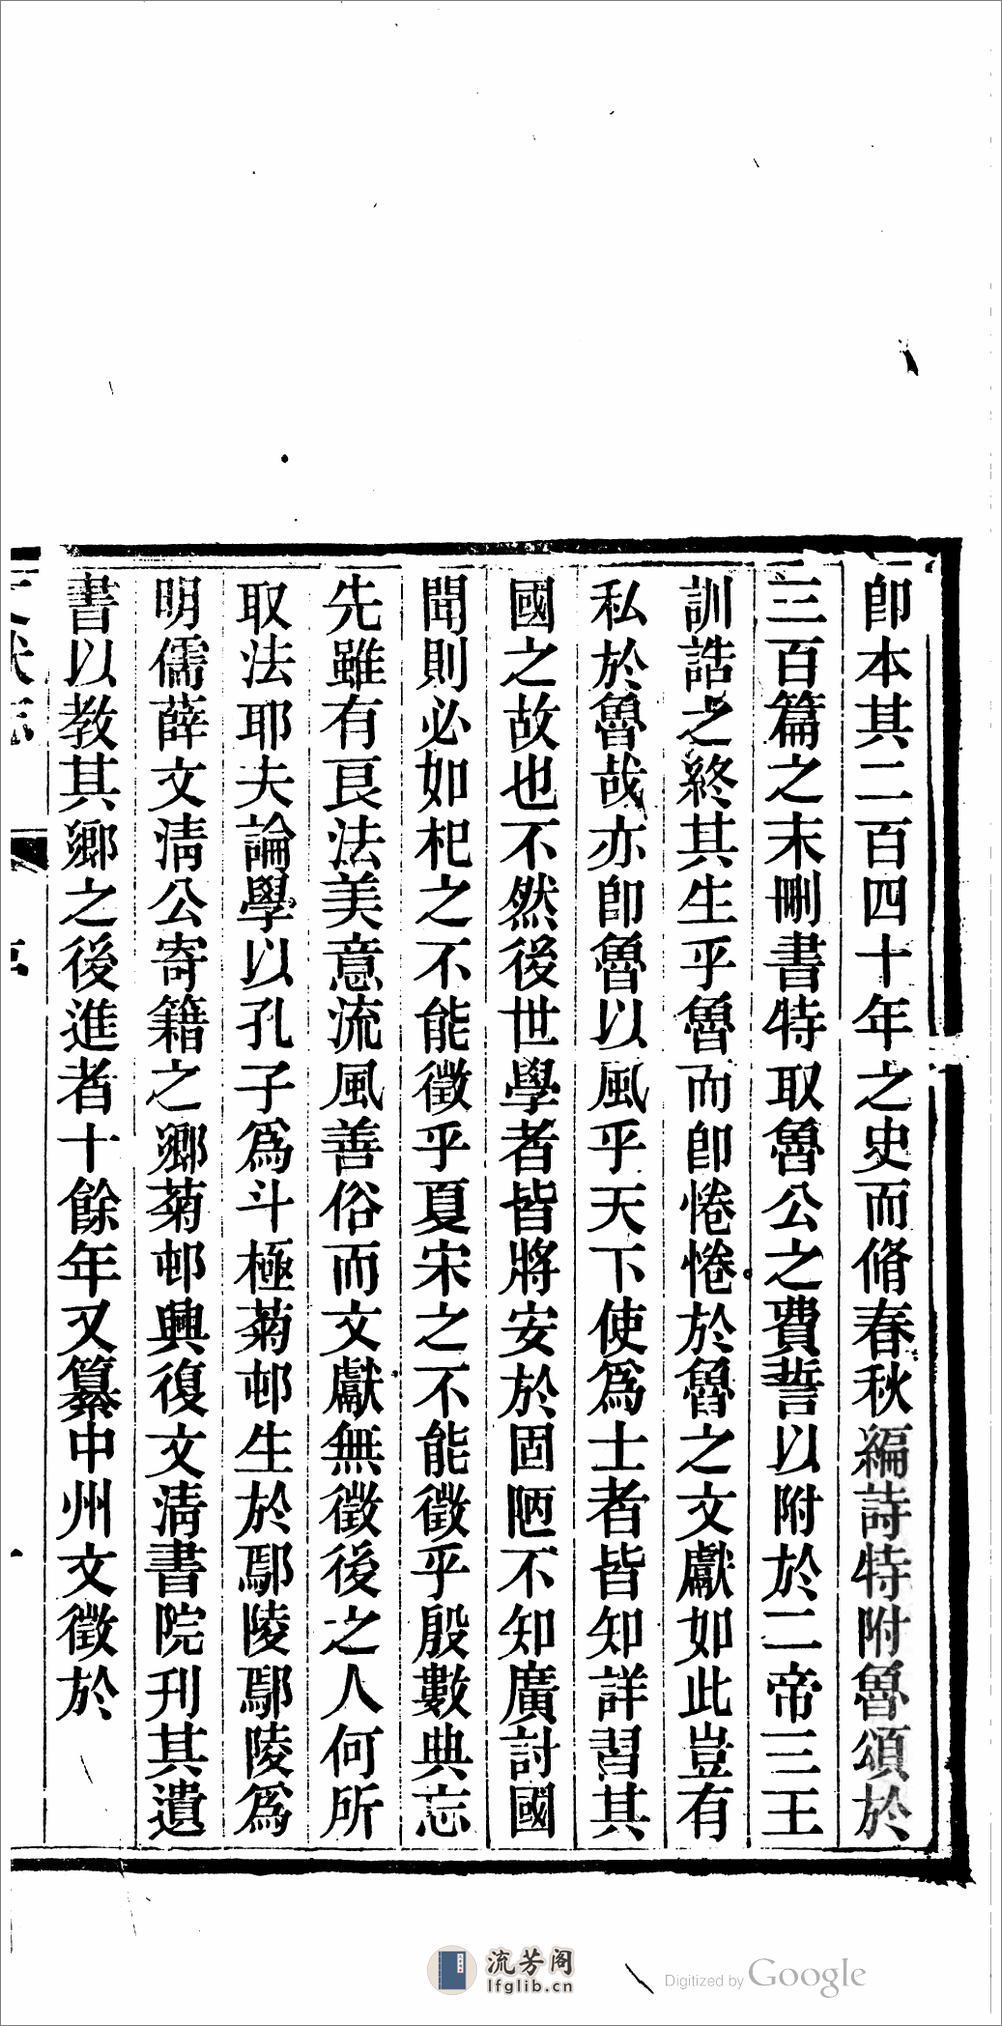 卽本其二百四十年之史而脩春秋編詩特附魯頌於
三百篇之末刪書特取魯公之費誓以附於二帝三王
訓誥之終其生乎魯而卽惓惓於魯之文獻如此豈有
私於魯哉亦卽魯以風乎天下使爲士者皆知詳習其
國之故也不然後世學者皆將安於固陋不知廣討國
聞則必如杞之不能徵乎夏宋之不能徵乎殷數典忘
先雖有良法美意流風善俗而文獻無徵後之人何所
取法耶夫論學以孔子爲斗極菊邨生於鄢陵鄢陵爲
明儒薛文淸公寄籍之鄕菊邨興復文淸書院刊其遺
書以教其鄕之後進者十餘年又纂中州文徵於
流芳阁
lfglib.cn
Digitized by Google